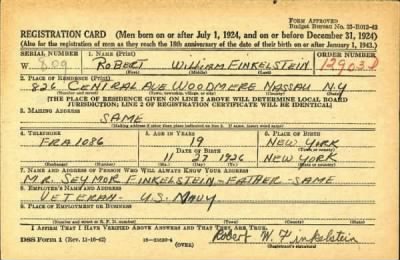 FORM APPROVED
Budget Bureau No. 33-R012-42
REGISTRATION CARD (Men born on or after July 1, 1924, and on or before December 31, 1924)
(Also for the registration of men as they reach the 18th anniversary of the date of their birth on or after January 1, 1943.)
SERIAL NUMBER 1. NAME (Print) ORDER NUMBER
W 809 ROBERT WILLIAM FINKELSTEIN
(First) (Middle) (Last)
2. PLACE OF RESIDENCE (Print)
826 CENTRAL AVE WOODMERE NASSAU N.Y
(Number and street) (Town, township, village, or city) (County) (State)
[THE PLACE OF RESIDENCE GIVEN ON LINE 2 ABOVE WILL DETERMINE LOCAL BOARD
JURISDICTION; LINE 2 OF REGISTRATION CERTIFICATE WILL BE IDENTICAL]
3. MAILING ADDRESS
SAME
[Mailing address if other than place indicated on line 2. If same, insert word same]
4. TELEPHONE 5. AGE IN YEARS 6. PLACE OF BIRTH
FRA 1086 19 NEW YORK
DATE OF BIRTH
11 27 1926 NEW YORK
7. NAME AND ADDRESS OF PERSON WHO WILL ALWAYS KNOW YOUR ADDRESS
MR. SEYMOR FINKELSTEIN - FATHER - SAME
8. EMPLOYER'S NAME AND ADDRESS
VETERAN - U.S. NAVY
9. PLACE OF EMPLOYMENT OR BUSINESS
I AFFIRM THAT I HAVE VERIFIED ABOVE ANSWERS AND THAT THEY ARE TRUE.
DSS Form 1 (Rev. 11-16-42) (OVER) Robert W. Finkelstein
(Registrant's signature)